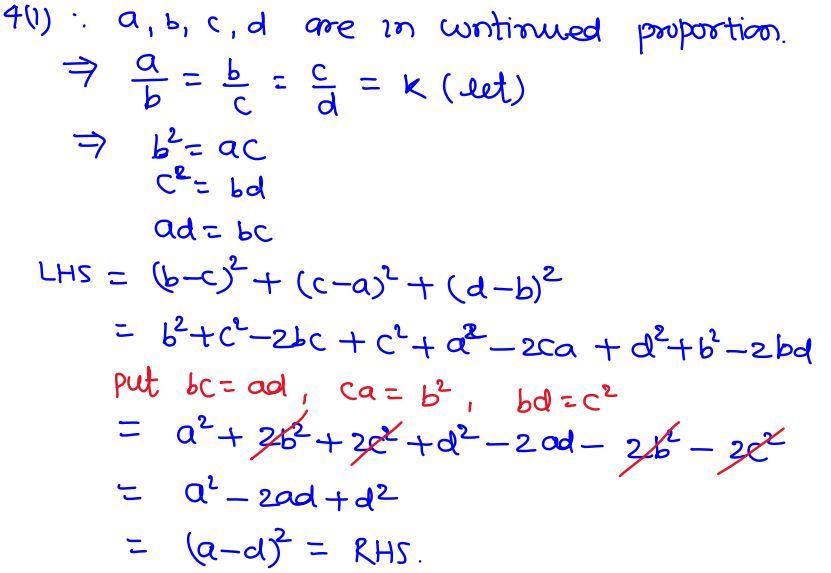 4(1) ∵ a, b, c, d are in continued proportion.
⇒ a/b = b/c = c/d = K (let)
⇒ b² = ac
c² = bd
ad = bc
LHS = (b-c)² + (c-a)² + (d-b)²
= b²+c²-2bc + c²+a²-2ca + d²+b²-2bd
put bc = ad, ca = b², bd = c²
= a² + 2b² + 2c² + d² - 2ad - 2b² - 2c²
= a² - 2ad + d²
= (a-d)² = RHS.